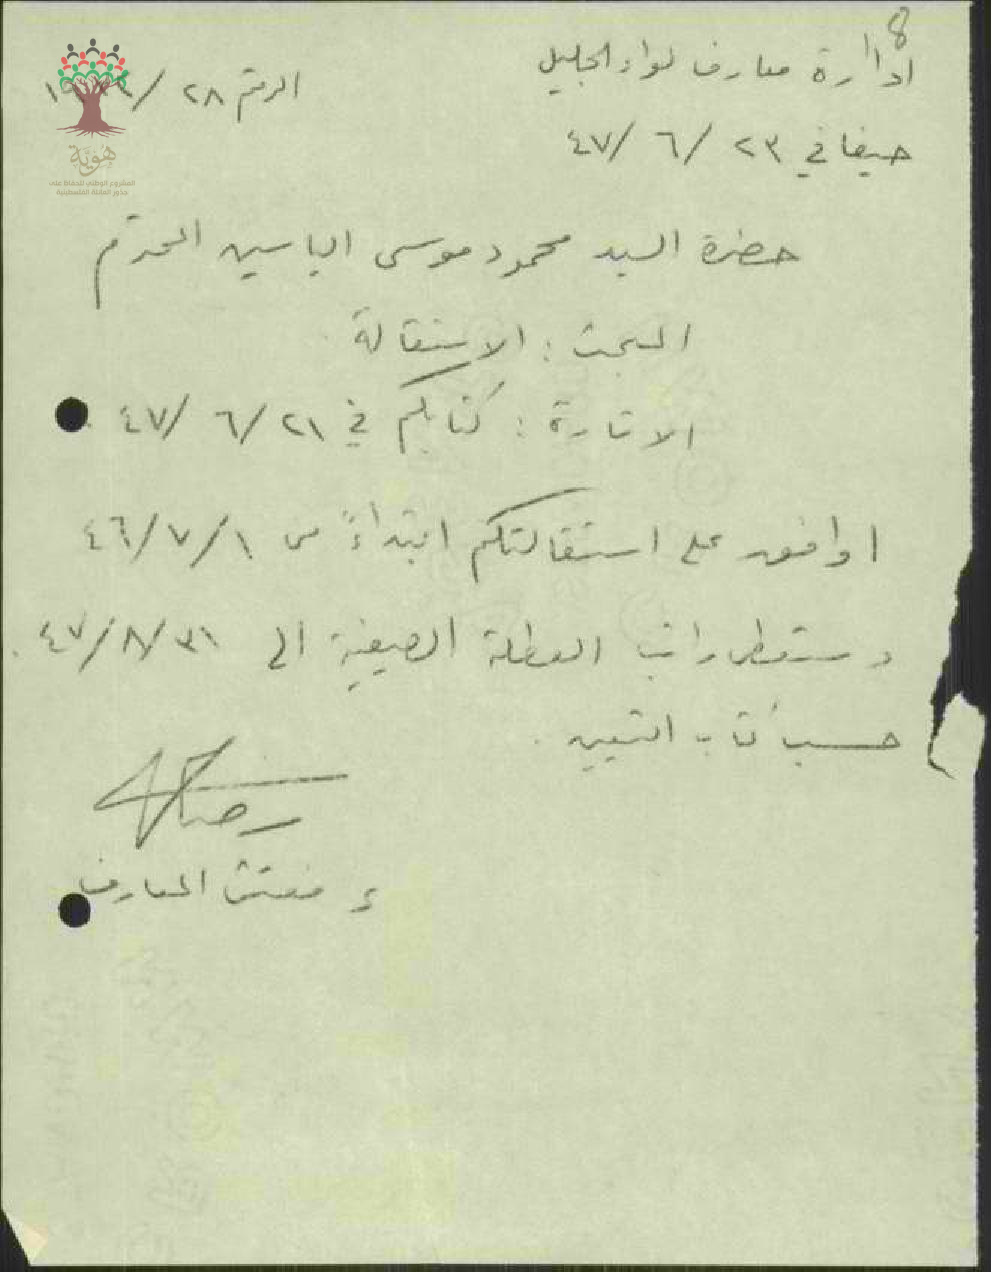 8
ادارة معارف لواء الجليل
الرقم ٢٨/
حيفا في ٢٣/٦/٤٧
هَوِيَّة
المشروع الوطني للحفاظ على
جذور العائلة الفلسطينية
حضرة السيد محمود موسى الياسين المحترم
المبحث : الاستقالة
الاشارة : كتابكم في ٢١/٦/٤٧
اوافق على استقالتكم ابتداءً من ١/٧/٤٦
وستعطى راتب العطلة الصيفية الى ٣١/٨/٤٧.
حسب كتاب التعيين.
ء مفتش المعارف